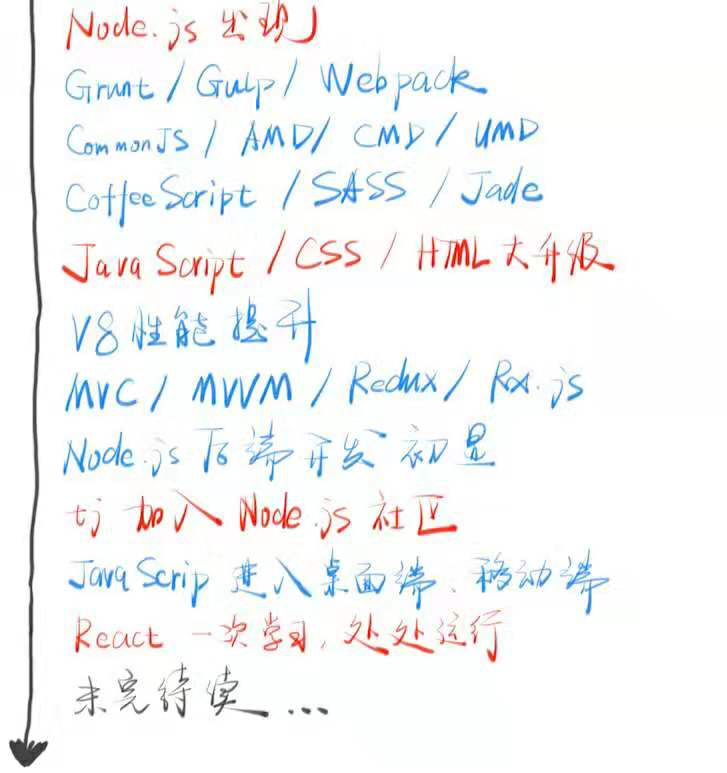 Node.js 出现
Grunt / Gulp / Webpack
CommonJS / AMD / CMD / UMD
CoffeeScript / SASS / Jade
JavaScript / CSS / HTML 大升级
V8 性能提升
MVC / MVVM / Redux / Rx.js
Node.js 后端开发初显
tj 加入 Node.js 社区
JavaScrip 进入桌面端、移动端
React 一次学习, 处处运行
未完待续 ...